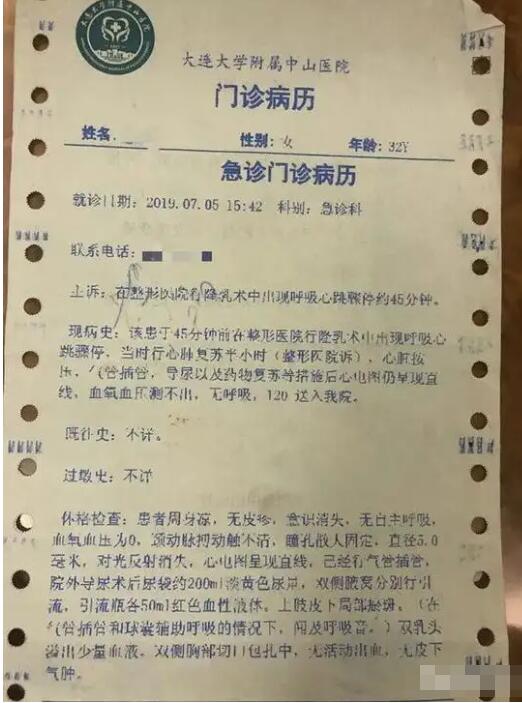 大连大学附属中山医院
大连大学附属中山医院
门诊病历
姓名: 性别: 女 年龄: 32Y
急诊门诊病历
就诊日期: 2019.07.05 15:42 科别: 急诊科
联系电话:
主诉: 在整形医院行隆乳术中出现呼吸心跳骤停约45分钟。
现病史: 该患于45分钟前在整形医院行隆乳术中出现呼吸心
跳骤停, 当时行心肺复苏半小时(整形医院诉), 心脏按
压, 气管插管, 导尿以及药物复苏等措施后心电图仍呈现直
线, 血氧血压测不出, 无呼吸, 120 送入我院。
既往史: 不详。
过敏史: 不详
体格检查: 患者周身凉, 无皮疹, 意识消失, 无自主呼吸,
血氧血压为0, 颈动脉搏动触不清, 瞳孔散大固定, 直径5.0
毫米, 对光反射消失, 心电图呈现直线, 已经行气管插管,
院外导尿术后尿袋约200ml淡黄色尿液, 双侧腋窝分别行引
流, 引流瓶各50ml红色血性液体。上肢皮下局部瘀斑。(在
气管插管和球囊辅助呼吸的情况下, 闻及呼吸音。) 双乳头
溢出少量血液, 双侧胸部切口包扎中, 无活动出血, 无皮下
气肿。